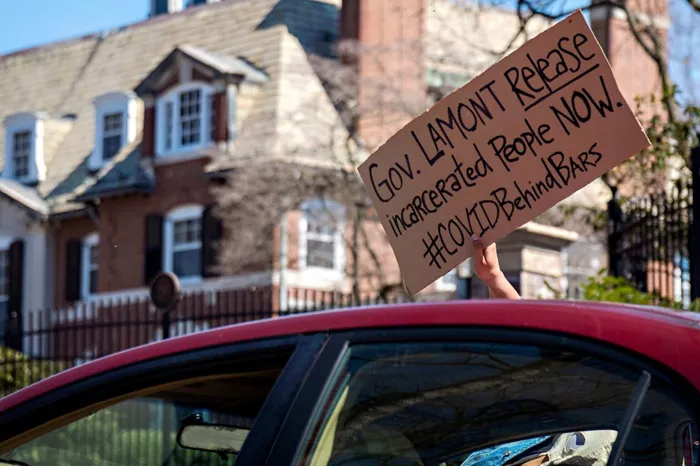 Gov. LAMONT Release
incarcerated People NOW.
#COVIDBehindBars